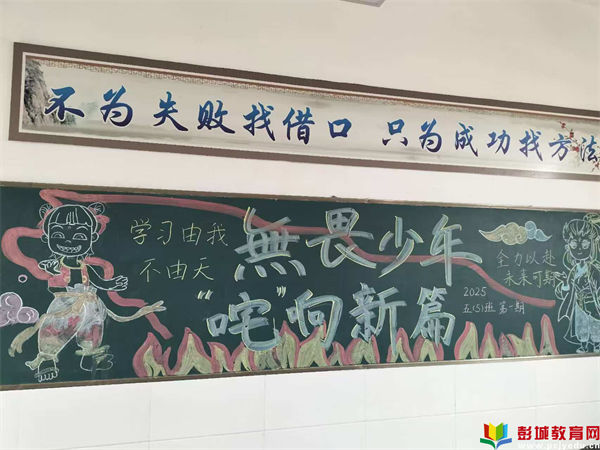 不为失败找借口 只为成功找方法
学习由我
不由天
無畏少年
“咤”向新篇
全力以赴
未来可期
2025
五(5)班 第一期
彭城教育网